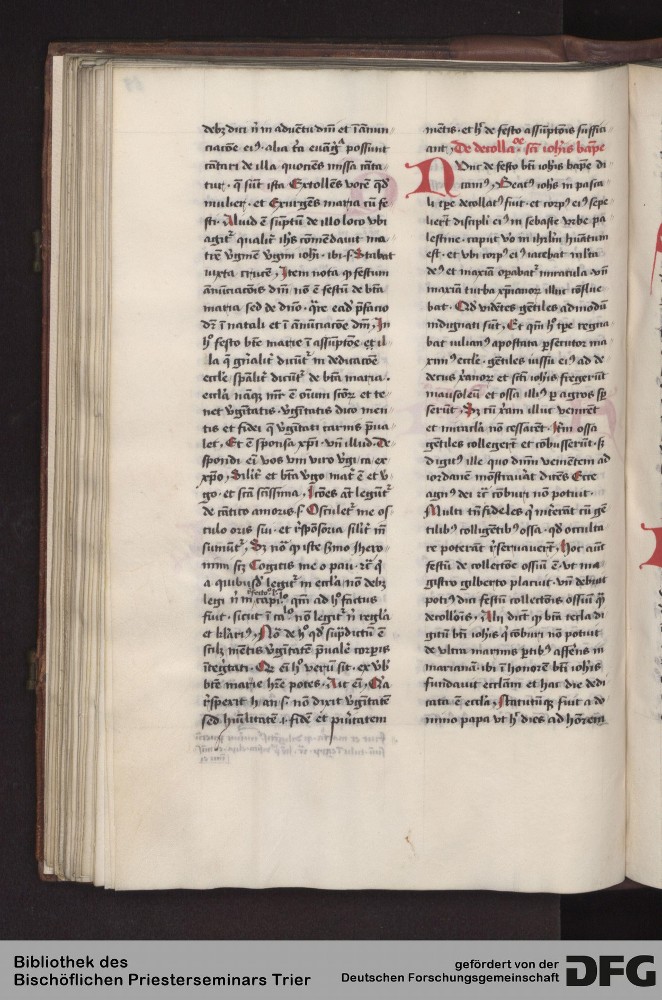 debꝫ dici nͥ in adventu dm̄ et ī ānun
ciacōe eiꝰ. alia tn̄ euāgᵃ possunt
cātari de illa quociens missa cāta
tur. q̄ sūt ista Extollēs vocē qd̄
mulier. et Exurgēs maria cū fe
sti. Aliud ē sūptū de illo loco vbi
agitʳ qualiť ihs̄ cōmēdauit ma
trē v̓ginē v̓gini iohī. ibi. s. Stabat
iuxta crucē, Itē nota ꝙ festum
ānūciacōis dm̄ nō ē festū de bt̄a
maria sed de dn̄o. q̄re eadē p̄facio
dʳ ī natali et ī ānūciacōe dm̄, In
hͦ festo bt̄e marie ī assūptōe et il
la q̄ gn̄alit̓ dicūtʳ in dedicacōe
eccl̄e sp̄alit̓ dicūtʳ de bt̄a maria.
eccl̄a nāqꝫ mr̄ ē oīum scōꝝ et te
net v̓ginitatis. v̓gītatis dico men
tis et fidei q̄ v̓gītati carnis p̄ua
let, Et ē sponsa xp̄i. vn̄ illud. De
spondi eī vos vni viro v̓gī. ca ex
xp̄o, Silit̓ et bt̄a v̓go mat̓ ē et v̓
go. et scā scīssima, Icōes aūt legūtʳ
de cātico amoris. s. Osculetʳ me os
culo oris sui. et rn̄sponsoria silit̓ in
sumūtʳ, Sꝫ nōᵃ ꝙ iste s̄mo Ihero
nimi scꝫ Cogitis me o pau. ꝛc̄ q̄
a quibusdā legitʳ in eccl̄a nō debꝫ
legi nͥ in capi.ͦ qm̄ ad hͦ factus
fuit. sicut ī caͦ nō legitʳ nͥ regl̄a
et kl̄ariꝰ, Nōᵃ de hͦ qd̄ sup̄dictū ē
scilꝫ mētis v̓gītatē p̄ualē corp̄is
īteg̓tati. Qʳ eī hͦ verū sit. ex vb̓
bt̄e marie hr̄e potes. Ait eī, Qͥa
rn̄spexit hūi. s. nō dixit v̓gītatē
sed hūilitatē. i. fidē et pīuitatem
mētis. et hͨ de festo assūptōis suffici
ant, De decollaͦē sct̄i ioh̄is bap̄te
Nunc de festo bt̄i ioh̄is bap̄te di
camꝰ, Beatꝰ ioh̄s in pasca
li tp̄e decollatꝰ fuit. et corpꝰ eiꝰ sepe
lierūt discipli eiꝰ in sebaste vrbe pa
lestine. caput vō in ihrl̄m hūatum
est. et vbi corpꝰ eiꝰ iacebat mlt̄a
deꝰ et maxīa opabatʳ miracula. vn̄
maxīa turba xp̄ianoꝝ illuc cōflue
bat. Qd̄ vidētes gētiles admodū
indignati sūt, Et qm̄ hͦ tp̄e regna
bat iulianꝰ apostata p̄secutor ma
ximꝰ eccl̄e. gētiles iussu eiꝰ ad de
decus xānoꝝ et sct̄i ioh̄is fregerūt
mausoleū et ossa illiꝰ p̄ agros sp̄
serūt, Sꝫ cū xāni illuc veniret
et miracl̄a nō cessarēt. Itm̄ ossa
gētiles collegerūt et cōbusserūt. sꝫ
digitꝰ ille quo dūm venientem ad
iordanē mostrauat dicēs Ecce
agnꝰ dei ꝛc̄ cōburi nō potuit.
Multi tn̄ fideles q̄ int̓erāt cū gē
tilibꝰ colligētibꝰ ossa. qd̄ occulta
re poterāt rn̄seruauerūt, Hoc aūt
festū de collectōe ossiū ē. vt ma
gistro gilberto placuit. vn̄ debuit
potiꝰ dici festū collectōis ossiū ꝙ̄
decollōis, Alij dicūt ꝙ bt̄a tecla di
gitū bt̄i ioh̄is q̄ cōburi nō potuit
de vltra marinis p̄tibꝰ afferēs in
mariānā. ibi ī honorē bt̄i ioh̄is
fundauit eccl̄am et hac die dedi
cata ē eccl̄a, Statutūqꝫ fuit a do
mino papa vt hͨ dies ad hōrem
Bibliothek des
Bischöflichen Priesterseminars Trier
gefördert von der
Deutschen Forschungsgemeinschaft
DFG